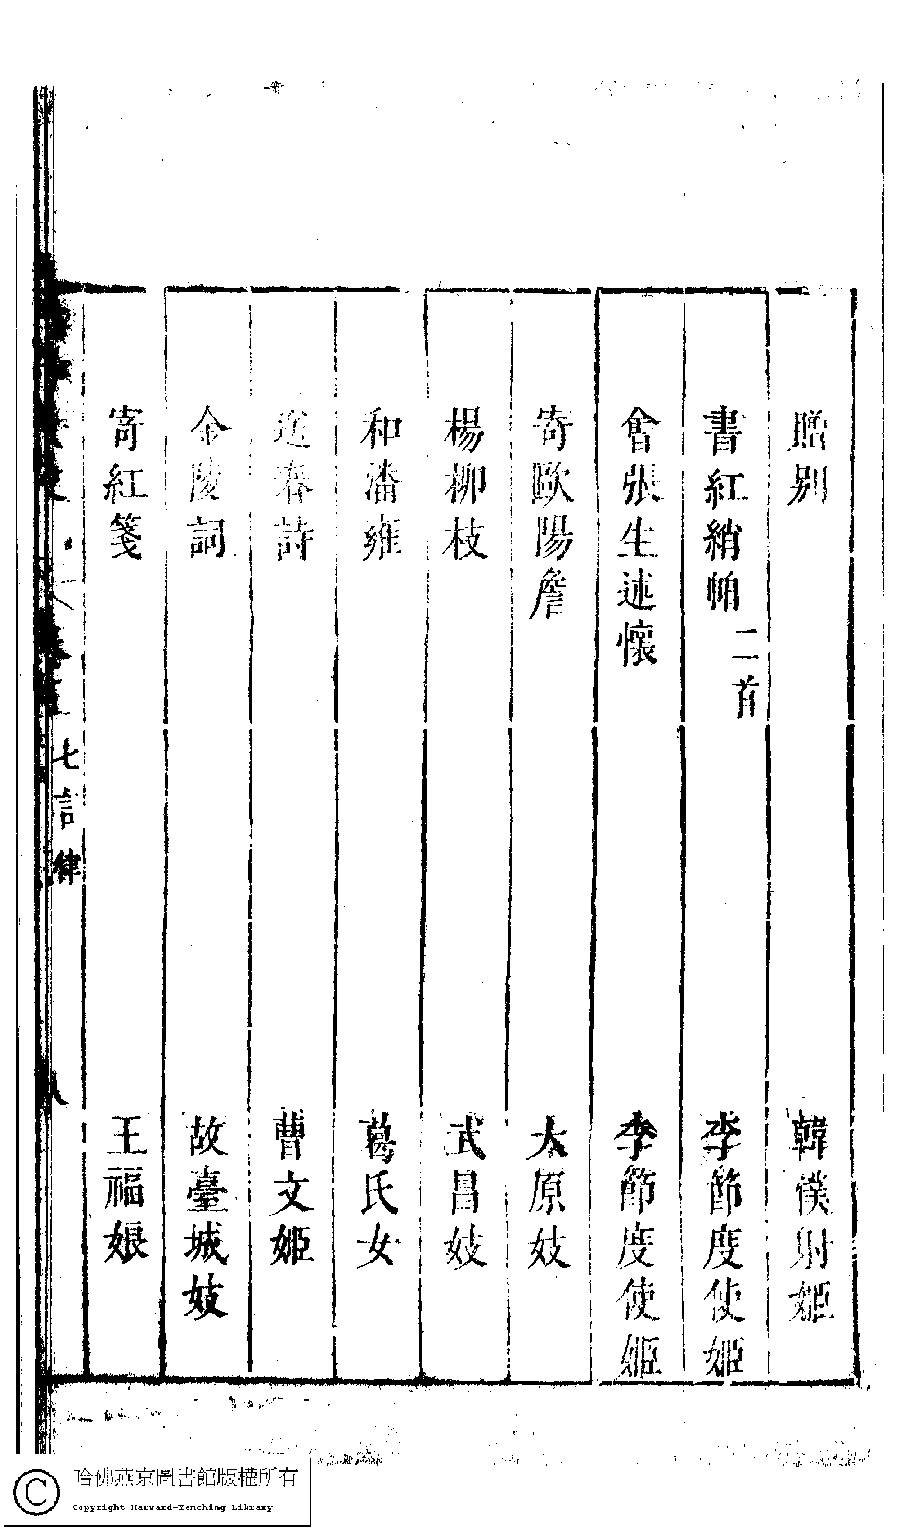 贈別 韓僕射姬
書紅綃帕 二首 李節度使姬
會張生述懷 李節度使姬
寄歐陽詹 太原妓
楊柳枝 武昌妓
和潘雍 葛氏女
送春詩 曹文姬
金陵詞 故臺城妓
寄紅箋 王福娘
七言律
八
哈佛燕京圖書館版權所有
Copyright Harvard-Yenching Library